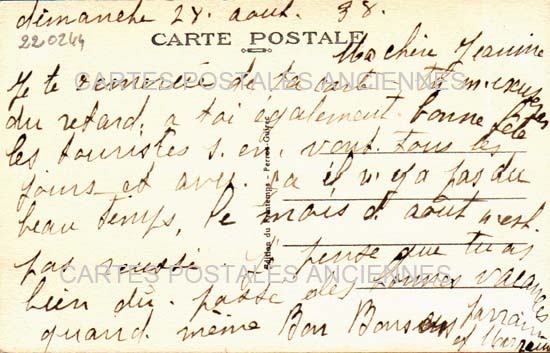 dimanche 28. aout. 38.
220244
CARTE POSTALE
Ma chère Jeanine
Je te remercie de ta carte tu m'excuseras
du retard, a toi également bonne fête
les touristes s. en. vont tous les
jours et avec ça il n'y a pas du
beau temps, le mois d'aout n'est
pas reussi. Je pense que tu as
bien dû. passé des bonnes vacances
quand même Bon Bons
parrain
et Marraine
Edition du Printemps - Perros-Guirec
CARTES POSTALES ANCIENNES
CARTES POSTALES ANCIENNES